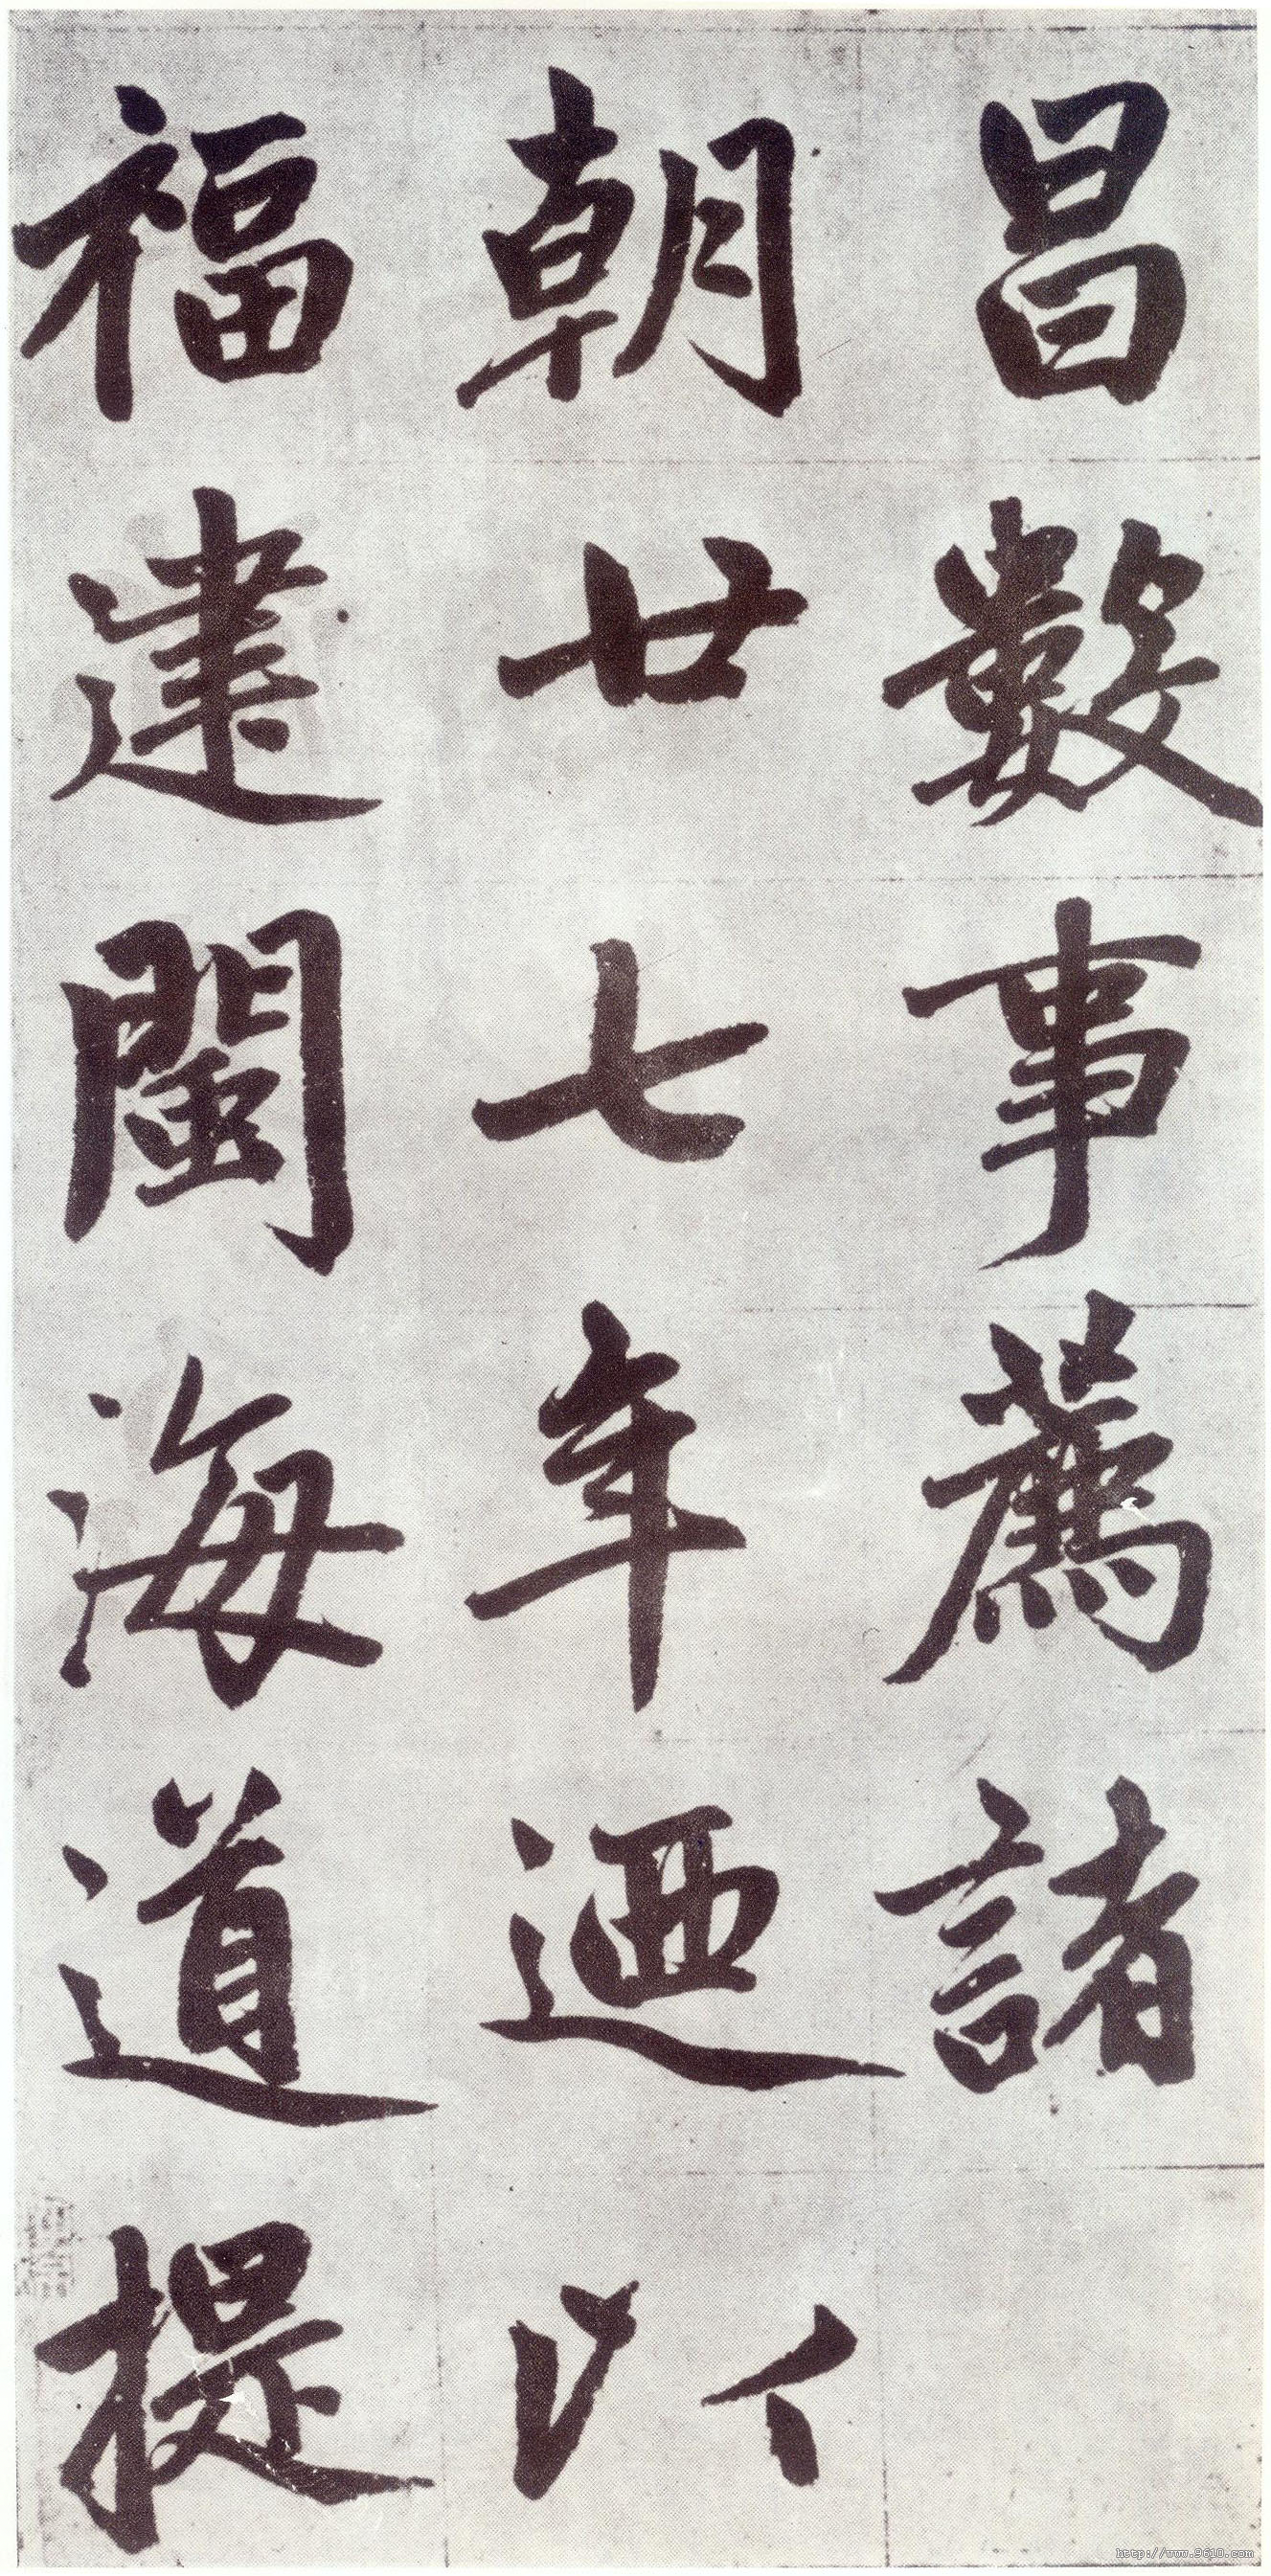 昌數事薦諸
朝廿七年迺以
福建閩海道提
http://www.9610.com